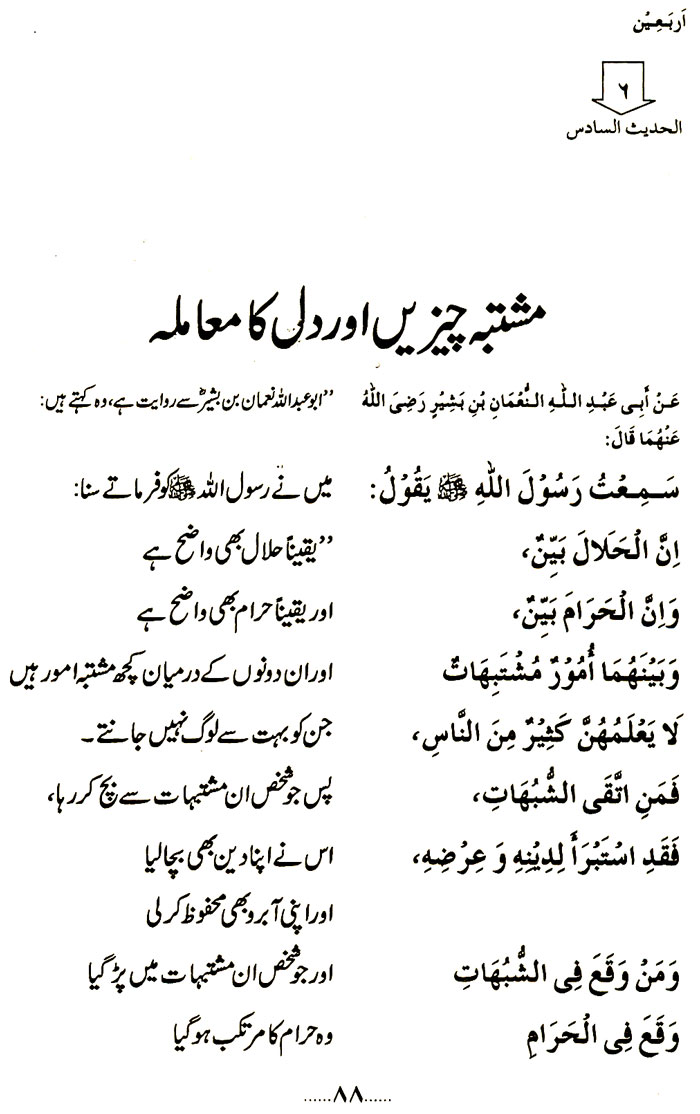 اَربَعِیْن
٦
الحدیث السادس
مشتبہ چیزیں اور دل کا معاملہ
عَنْ أَبِی عَبْدِ اللّٰهِ النُّعْمَانِ بْنِ بَشِیْرٍ رَضِیَ اللّٰهُ
عَنْهُمَا قَالَ:
”ابوعبداللہ نعمان بن بشیرؓ سے روایت ہے، وہ کہتے ہیں:
سَمِعْتُ رَسُوْلَ اللّٰهِ ﷺ یَقُوْلُ:
میں نے رسول اللہ ﷺ کو فرماتے سنا:
اِنَّ الْحَلَالَ بَیِّنٌ،
”یقیناً حلال بھی واضح ہے
وَاِنَّ الْحَرَامَ بَیِّنٌ،
اور یقیناً حرام بھی واضح ہے
وَبَیْنَهُمَا أُمُوْرٌ مُشْتَبِهَاتٌ
اور ان دونوں کے درمیان کچھ مشتبہ امور ہیں
لَا یَعْلَمُهُنَّ كَثِیْرٌ مِنَ النَّاسِ،
جن کو بہت سے لوگ نہیں جانتے۔
فَمَنِ اتَّقَی الشُّبُهَاتِ،
پس جو شخص ان مشتبہات سے بچ کر رہا،
فَقَدِ اسْتَبْرَأَ لِدِیْنِهِ وَ عِرْضِهِ،
اس نے اپنا دین بھی بچا لیا
اور اپنی آبرو بھی محفوظ کر لی
وَمَنْ وَقَعَ فِی الشُّبُهَاتِ
اور جو شخص ان مشتبہات میں پڑ گیا
وَقَعَ فِی الْحَرَامِ
وہ حرام کا مرتکب ہو گیا
......۸۸......